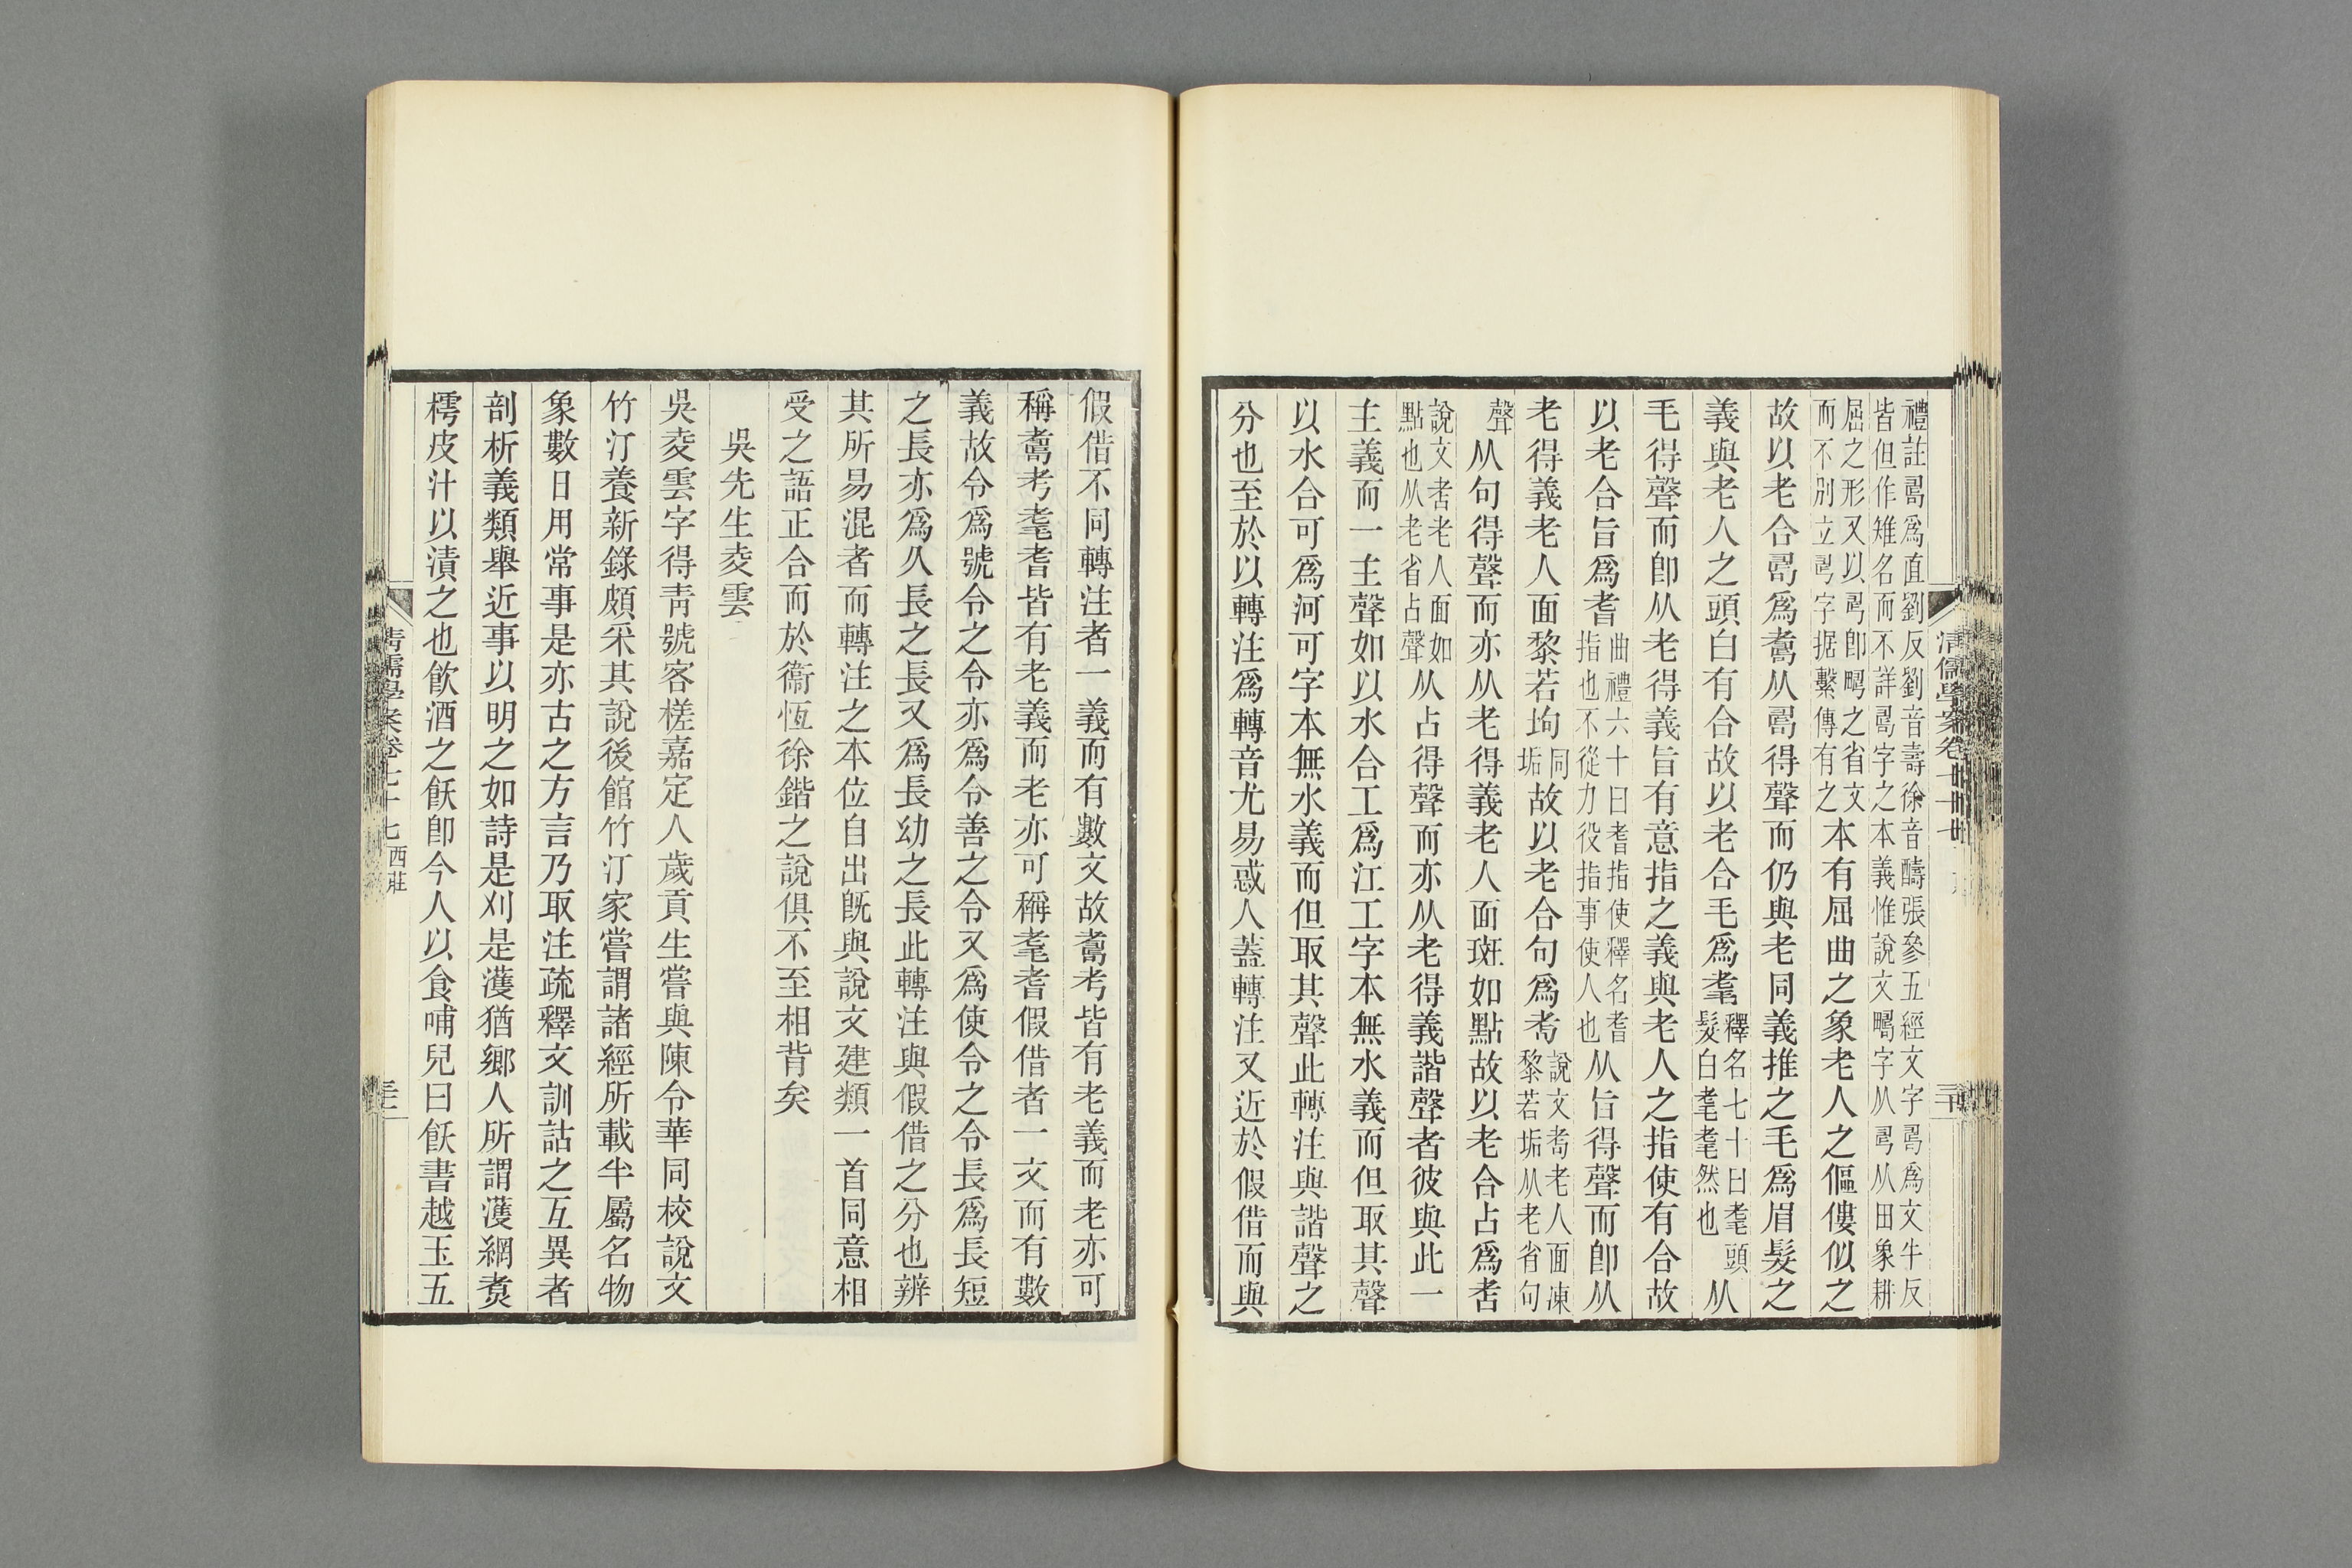 禮註𠷎爲直劉反劉音壽徐音醻張參五經文字𠷎爲文牛反
皆但作雉名而不詳𠷎字之本義惟說文𤲮字从𠃬从田象耕
屈之形又以𠃬卽𤲮之省文
而不別立𠃬字据繫傳有之
本有屈曲之象老人之傴僂似之
故以老合𠷎爲耉从𠷎得聲而仍與老同義推之毛爲眉髮之
義與老人之頭白有合故以老合毛爲耄
釋名七十曰耄頭
髮白耄耄然也
从
毛得聲而卽从老得義旨有意指之義與老人之指使有合故
以老合旨爲耆
曲禮六十曰耆指使釋名耆
指也不從力役指事使人也
从旨得聲而卽从
老得義老人面黎若坸
同
垢
故以老合句爲耇
說文耇老人面凍
黎若垢从老省句
聲
从句得聲而亦从老得義老人面斑如點故以老合占爲㸃
說文老人面如
點也从老省占聲
从占得聲而亦从老得義諧聲者彼與此一
主義而一主聲如以水合工爲江工字本無水義而但取其聲
以水合可爲河可字本無水義而但取其聲此轉注與諧聲之
分也至於以轉注爲轉音尤易惑人蓋轉注又近於假借而與
清儒學案卷七十七
三十
假借不同轉注者一義而有數文故耉考皆有老義而老亦可
稱耉考耄耆皆有老義而老亦可稱耄耆假借者一文而有數
義故令爲號令之令亦爲令善之令又爲使令之令長爲長短
之長亦爲久長之長又爲長幼之長此轉注與假借之分也辨
其所易混者而轉注之本位自出旣與說文建類一首同意相
受之語正合而於衞恆徐鍇之說俱不至相背矣
吳先生夌雲
吳夌雲字得靑號客槎嘉定人歲貢生嘗與陳令華同校說文
竹汀養新錄頗采其說後館竹汀家嘗謂諸經所載半屬名物
象數日用常事是亦古之方言乃取注疏釋文訓詁之互異者
剖析義類舉近事以明之如詩是刈是濩猶鄉人所謂濩網煑
樗皮汁以漬之也飮酒之飫卽今人以食哺兒曰飫書越玉五
清儒學案卷七十七 西莊
三十一